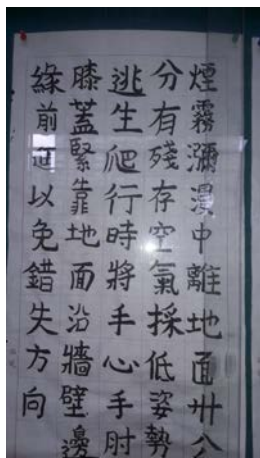 煙霧瀰漫中離地面卅公
分有殘存空氣採低姿勢
逃生爬行時將手心手肘
膝蓋緊靠地面沿牆壁邊
緣前進以免錯失方向